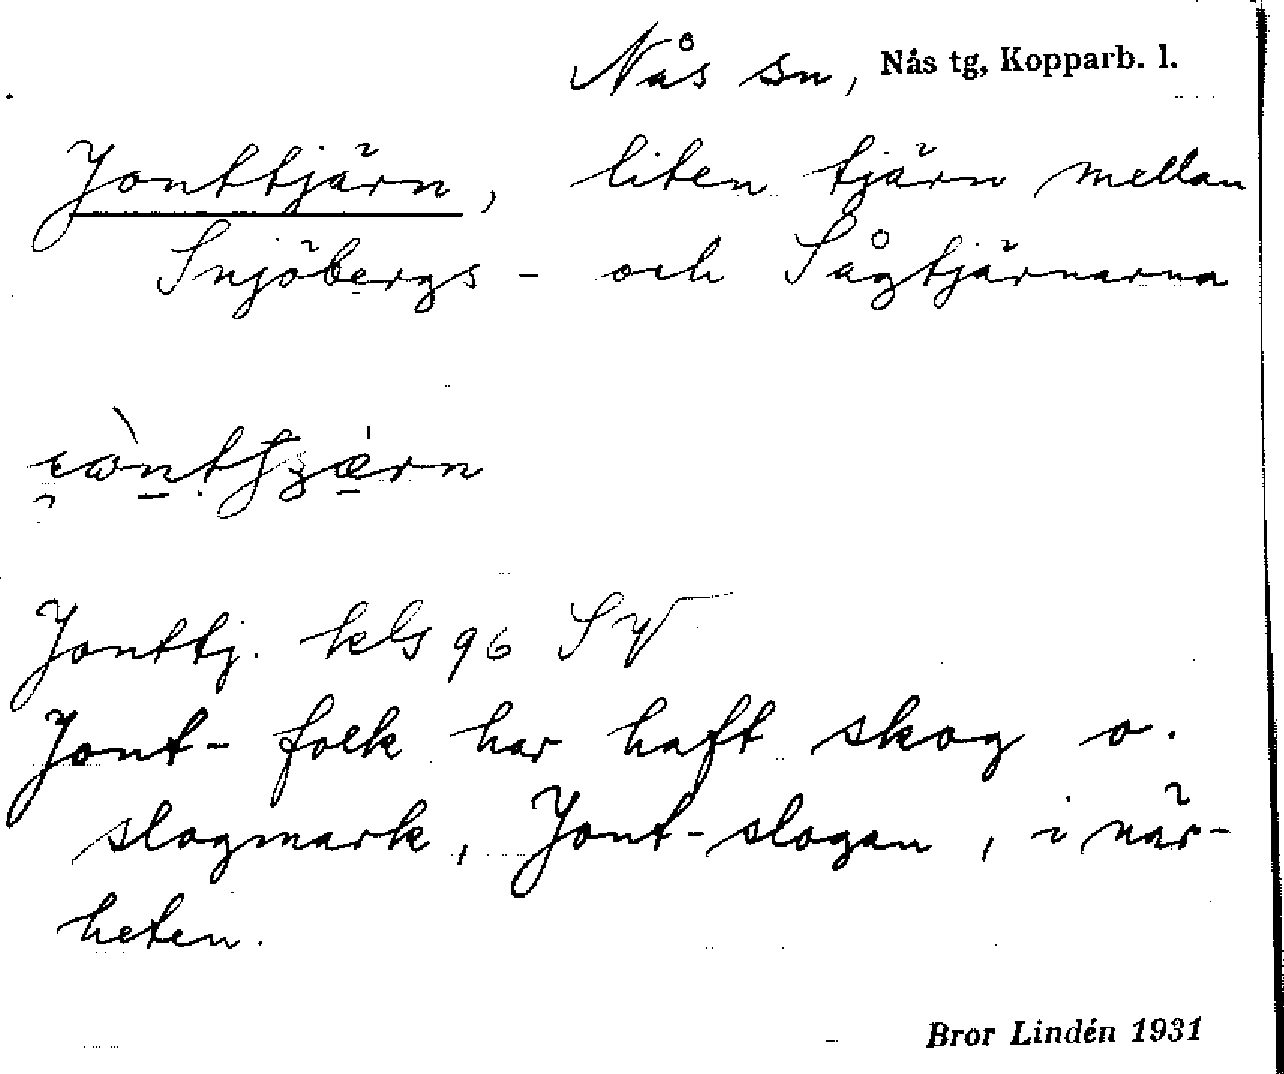 Nås sn, Nås tg, Kopparb. l.
Jonttjärn, liten tjärn mellan
Snjöbergs- och Sågtjärnarna
Jonttj. kls 96 SV
Jont-folk har haft skog o.
slogmark, Jont-slogan, i när-
heten.
Bror Lindén 1931